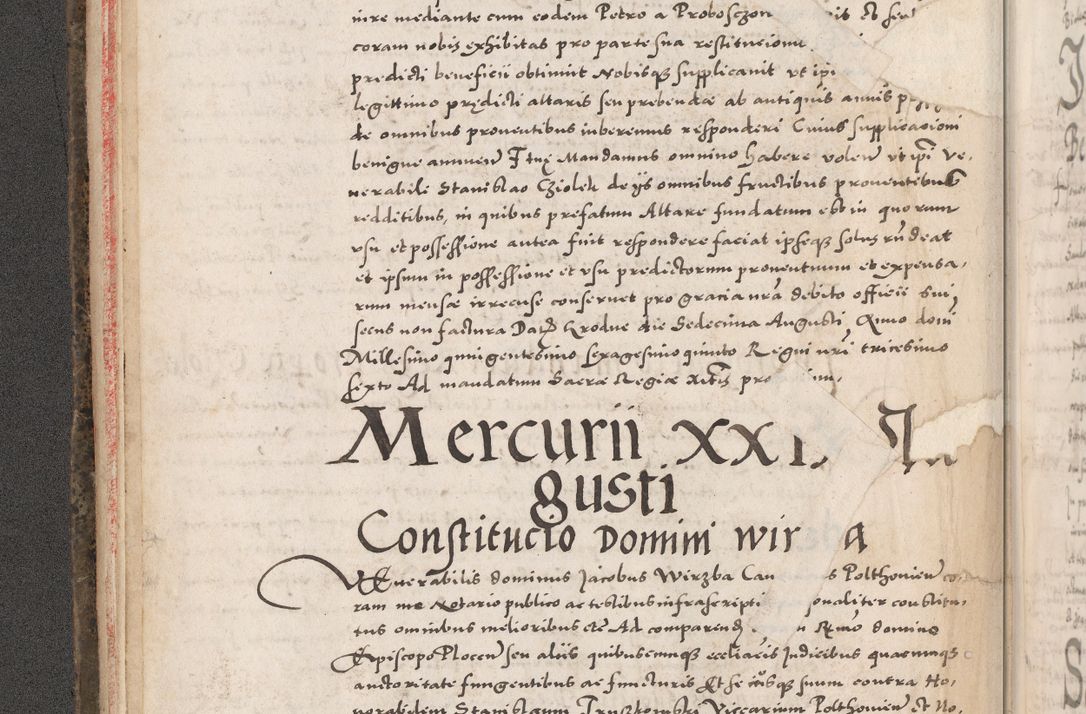 iure mediante cum eodem Petro a Proboszon it et sen
coram nobis exhibitas pro parte sua restitucionem
predicti beneficii obtinuit Nobisque supplicavit ut ipi
legittimo prędicti altaris seu prebendæ ab antiquis annis
de omnibus proventibus inberemus responderi Cuius supplicacioni
benigne annuen Itaq Mandamus omnino habere volen ut ipi Ve-
nerabile Stanislao Cziolek de ijs omnibus fructibus proventibus
redditibus, in quibus prefatum Altare fundatum est in quorum
usu et possessione antea fuit respondere faciat ipseque solus rūdeat
et ipsum in possessione et usu predictorum proventuum et expensa-
rum mensæ irrecuse conservet pro gracia nrā debito officii sui
secus non factura Dat Grodne die Sedecima Augusti, Anno doni
Millesimo quingentesimo sexagesimo quinto Regni nri tricesimo
sexto Ad mandatum Sacræ Regiæ Mtis pro
Mercurii XXI Au
gusti
Constitucio Domini Wir a
Venerabilis dominus Jacobus Wirzba Can s Polthovien co-
ram me Notario publico ac testibus infrascripti sonaliter constitu-
tus omnibus melioribus etc Ad comparend n Rmo domino
Episcopo Plocen seu aliis quibuscumque ecclīacis Judicibus quacumque
auctoritate fungentibus ac functuris Et se cūsque suum contra Ho-
norabilem Stanislaum Truszkowski Viccarium Polthovien et No-